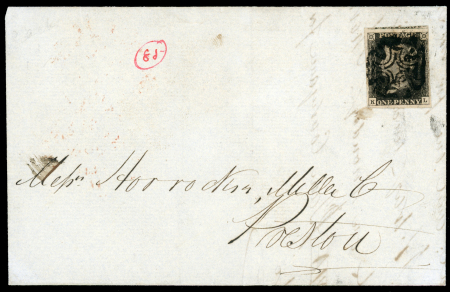 POSTAGE
K ONE PENNY L
8d
Messrs Horrockses, Miller & Co
Preston